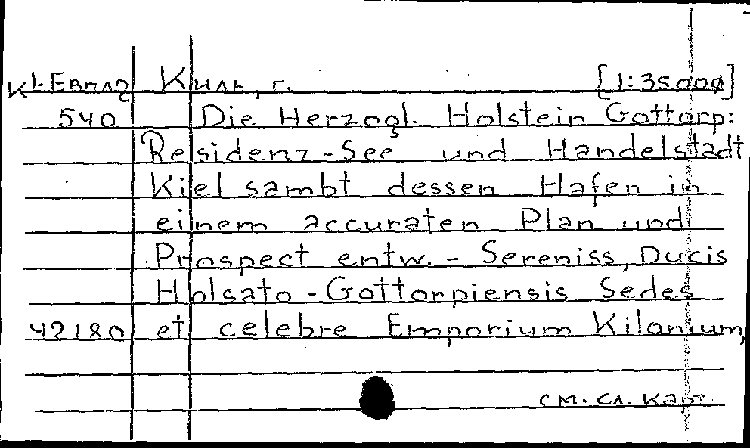 К1-Европ Киль, г. [1:35000]
540 Die Herzogl. Holstein Gottorp:
Residenz-See und Handelstadt
Kiel sambt dessen Hafen in
einem accuraten Plan und
Prospect entw. - Sereniss, Ducis
Holsato-Gottorpiensis Sedes
42180 et celebre Emporium Kilonium,
см. сл. карт.